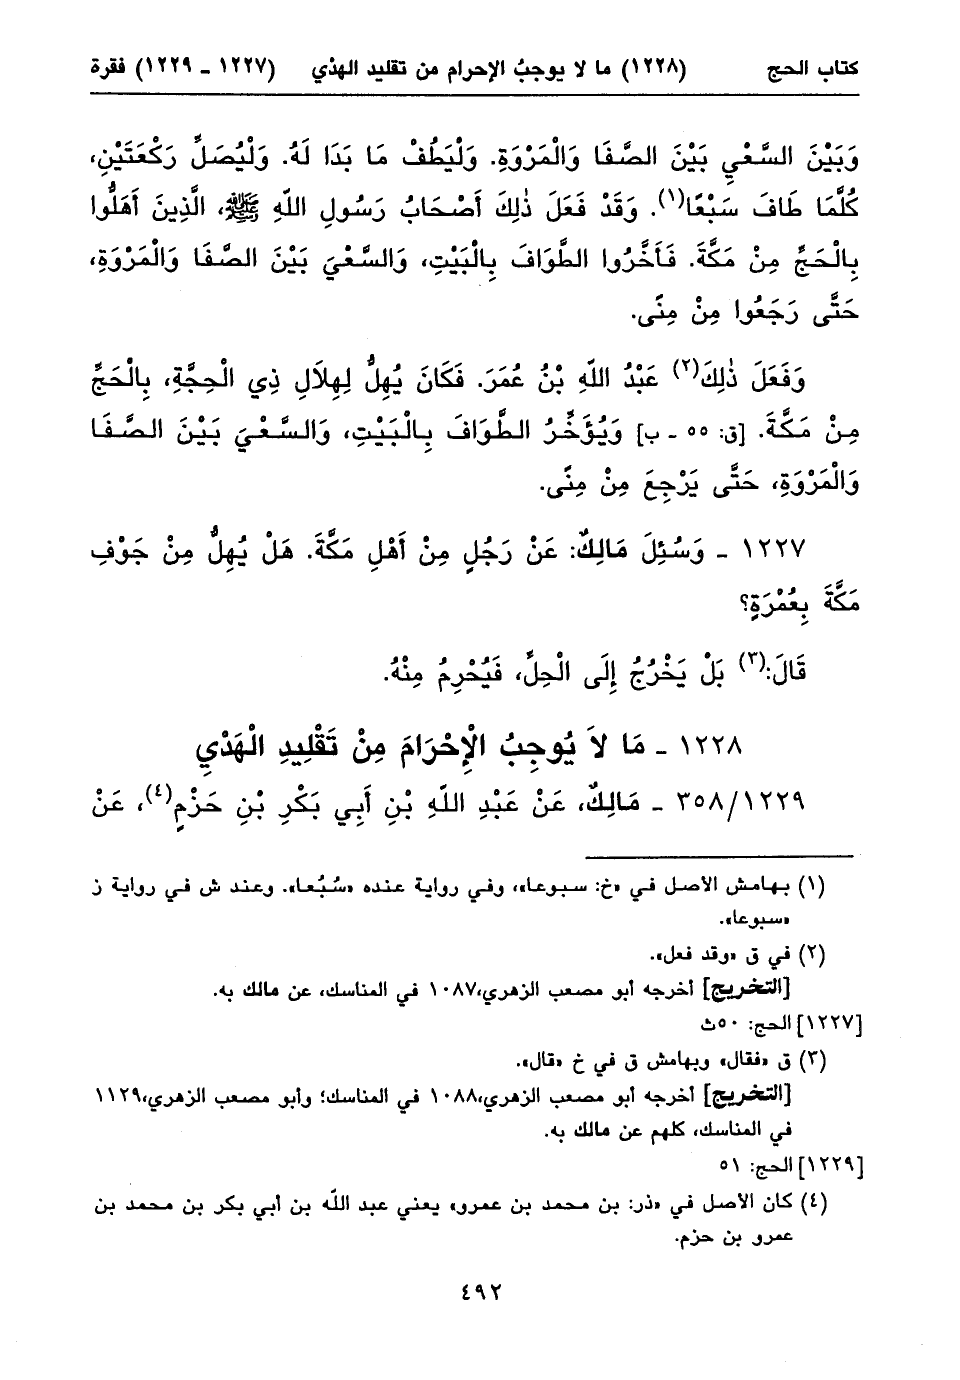 كتاب الحج (١٢٢٨) ما لا يوجبُ الإحرام من تقليد الهدْي (١٢٢٧ ـ ١٢٢٩) فقرة
وَبَيْنَ السَّعْيِ بَيْنَ الصَّفَا وَالْمَرْوَةِ. وَلْيَطُفْ مَا بَدَا لَهُ. وَلْيُصَلِّ رَكْعَتَيْنِ،
كُلَّمَا طَافَ سَبْعًا(١). وَقَدْ فَعَلَ ذٰلِكَ أَصْحَابُ رَسُولِ اللّٰهِ ﷺ، الَّذِينَ أَهَلُّوا
بِالْحَجِّ مِنْ مَكَّةَ. فَأَخَّرُوا الطَّوَافَ بِالْبَيْتِ، وَالسَّعْيَ بَيْنَ الصَّفَا وَالْمَرْوَةِ،
حَتَّى رَجَعُوا مِنْ مِنًى.
وَفَعَلَ ذٰلِكَ(٢) عَبْدُ اللّٰهِ بْنُ عُمَرَ. فَكَانَ يُهِلُّ لِهِلَالِ ذِي الْحِجَّةِ، بِالْحَجِّ
مِنْ مَكَّةَ. [ق: ٥٥ ـ ب] وَيُؤَخِّرُ الطَّوَافَ بِالْبَيْتِ، وَالسَّعْيَ بَيْنَ الصَّفَا
وَالْمَرْوَةِ، حَتَّى يَرْجِعَ مِنْ مِنًى.
١٢٢٧ ـ وَسُئِلَ مَالِكٌ: عَنْ رَجُلٍ مِنْ أَهْلِ مَكَّةَ. هَلْ يُهِلُّ مِنْ جَوْفِ
مَكَّةَ بِعُمْرَةٍ؟
قَالَ:(٣) بَلْ يَخْرُجُ إِلَى الْحِلِّ، فَيُحْرِمُ مِنْهُ.
١٢٢٨ ـ مَا لاَ يُوجِبُ الْإِحْرَامَ مِنْ تَقْلِيدِ الْهَدْيِ
٣٥٨/١٢٢٩ ـ مَالِكٌ، عَنْ عَبْدِ اللّٰهِ بْنِ أَبِي بَكْرِ بْنِ حَزْمٍ(٤)، عَنْ
(١) بهامش الأصل في «خ: سبوعا»، وفي رواية عنده «سُبُعا». وعند ش في رواية ز
«سبوعا».
(٢) في ق «وقد فعل».
[التخريج] أخرجه أبو مصعب الزهري،١٠٨٧ في المناسك، عن مالك به.
[١٢٢٧] الحج: ٥٠ث
(٣) ق «فقال» وبهامش ق في خ «قال».
[التخريج] أخرجه أبو مصعب الزهري،١٠٨٨ في المناسك؛ وأبو مصعب الزهري،١١٢٩
في المناسك، كلهم عن مالك به.
[١٢٢٩] الحج: ٥١
(٤) كان الأصل في «ذر: بن محمد بن عمرو» يعني عبد الله بن أبي بكر بن محمد بن
عمرو بن حزم.
٤٩٢